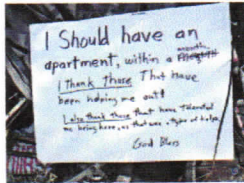 I Should have an
apartment, within a month.
I thank those That have
been helping me out!
I also thank those that have tolerated
me being here, as that was a type of help.
God Bless